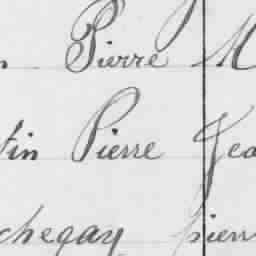 Pierre M
tin Pierre Jea
chegay pierr